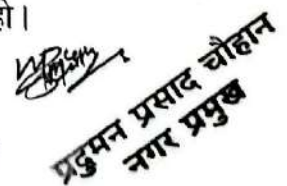 हो।
प्रदुमन प्रसाद चौहान
नगर प्रमुख